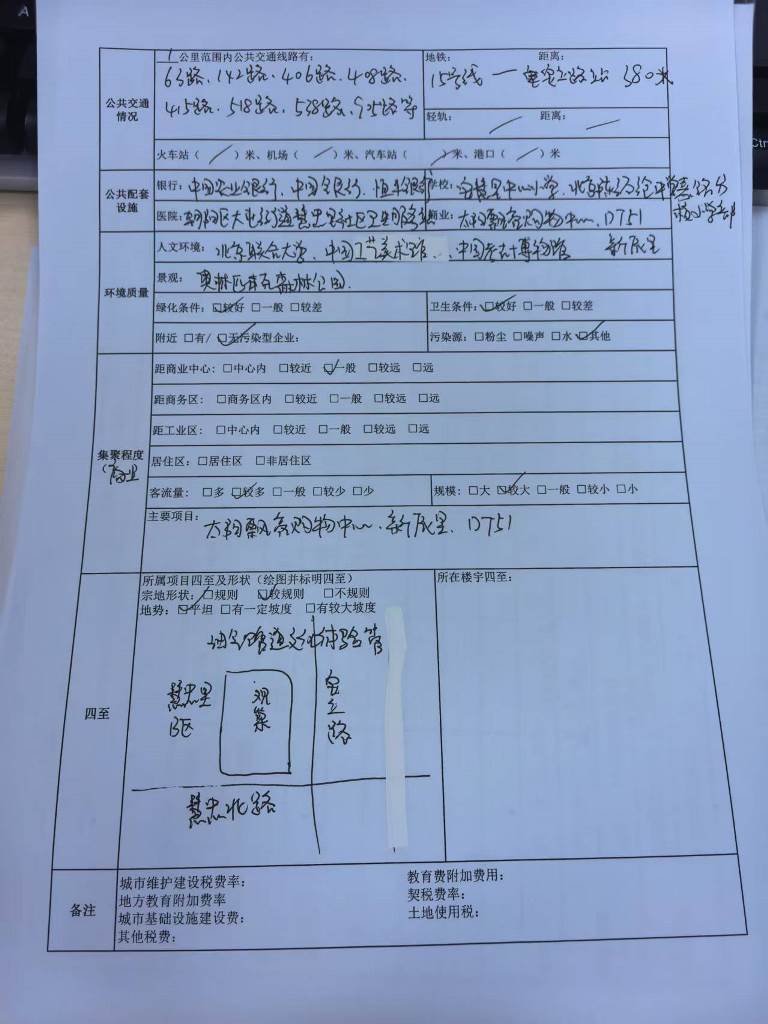 1公里范围内公共交通线路有:
地铁: 距离:
63路、142路、406路、408路、
15号线 — 站 380米
415路、518路、538路、 等
公共交通情况
轻轨: 距离:
火车站( / )米、机场( / )米、汽车站( / )米、港口( / )米
公共配套设施
银行:中国农业银行、中国 银行、恒丰银行
学校:安慧里中心小学、北京
医院:朝阳区大屯街道慧忠里社区卫生服务站
商业:太阳飘亮购物中心、D751
环境质量
人文环境:北京联合大学、中国工艺美术馆、中国 博物馆 新辰里
景观:奥林匹克森林公园.
绿化条件:☑较好 □一般 □较差
卫生条件:☑较好 □一般 □较差
附近 □有/☑无污染型企业:
污染源:□粉尘 □噪声 □水 ☑其他
集聚程度
(商业
距商业中心:□中心内 □较近 ☑一般 □较远 □远
距商务区:□商务区内 □较近 □一般 □较远 □远
距工业区:□中心内 □较近 □一般 □较远 □远
居住区:□居住区 □非居住区
客流量:□多 ☑较多 □一般 □较少 □少
规模:□大 ☑较大 □一般 □较小 □小
主要项目:
太阳飘亮购物中心、新辰里、D751
四至
所属项目四至及形状(绘图并标明四至)
所在楼宇四至:
宗地形状:□规则 ☑较规则 □不规则
地势:☑平坦 □有一定坡度 □有较大坡度
文化体验馆
慧忠里
B区
安立路
慧忠北路
备注
城市维护建设税费率:
教育费附加费用:
地方教育附加费率
契税费率:
城市基础设施建设费:
土地使用税:
其他税费: